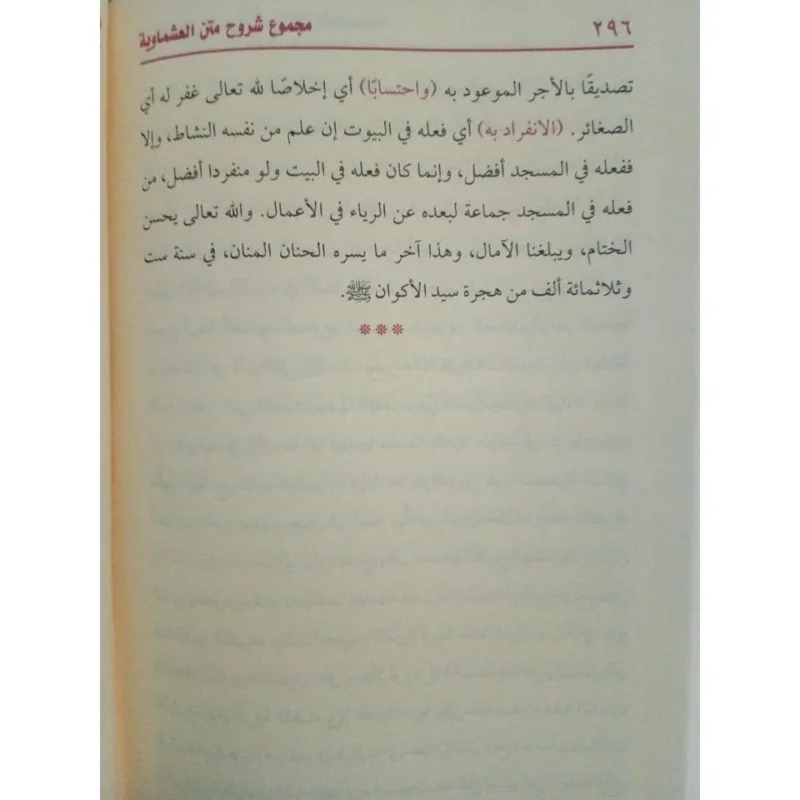 ٢٩٦ مجموع شروح متن العشماوية
تصديقًا بالأجر الموعود به (واحتسابًا) أي إخلاصًا لله تعالى غفر له أي
الصغائر. (الانفراد به) أي فعله في البيوت إن علم من نفسه النشاط، وإلا
ففعله في المسجد أفضل، وإنما كان فعله في البيت ولو منفردا أفضل، من
فعله في المسجد جماعة لبعده عن الرياء في الأعمال. والله تعالى يحسن
الختام، ويبلغنا الآمال، وهذا آخر ما يسره الحنان المنان، في سنة ست
وثلاثمائة ألف من هجرة سيد الأكوان ﷺ.